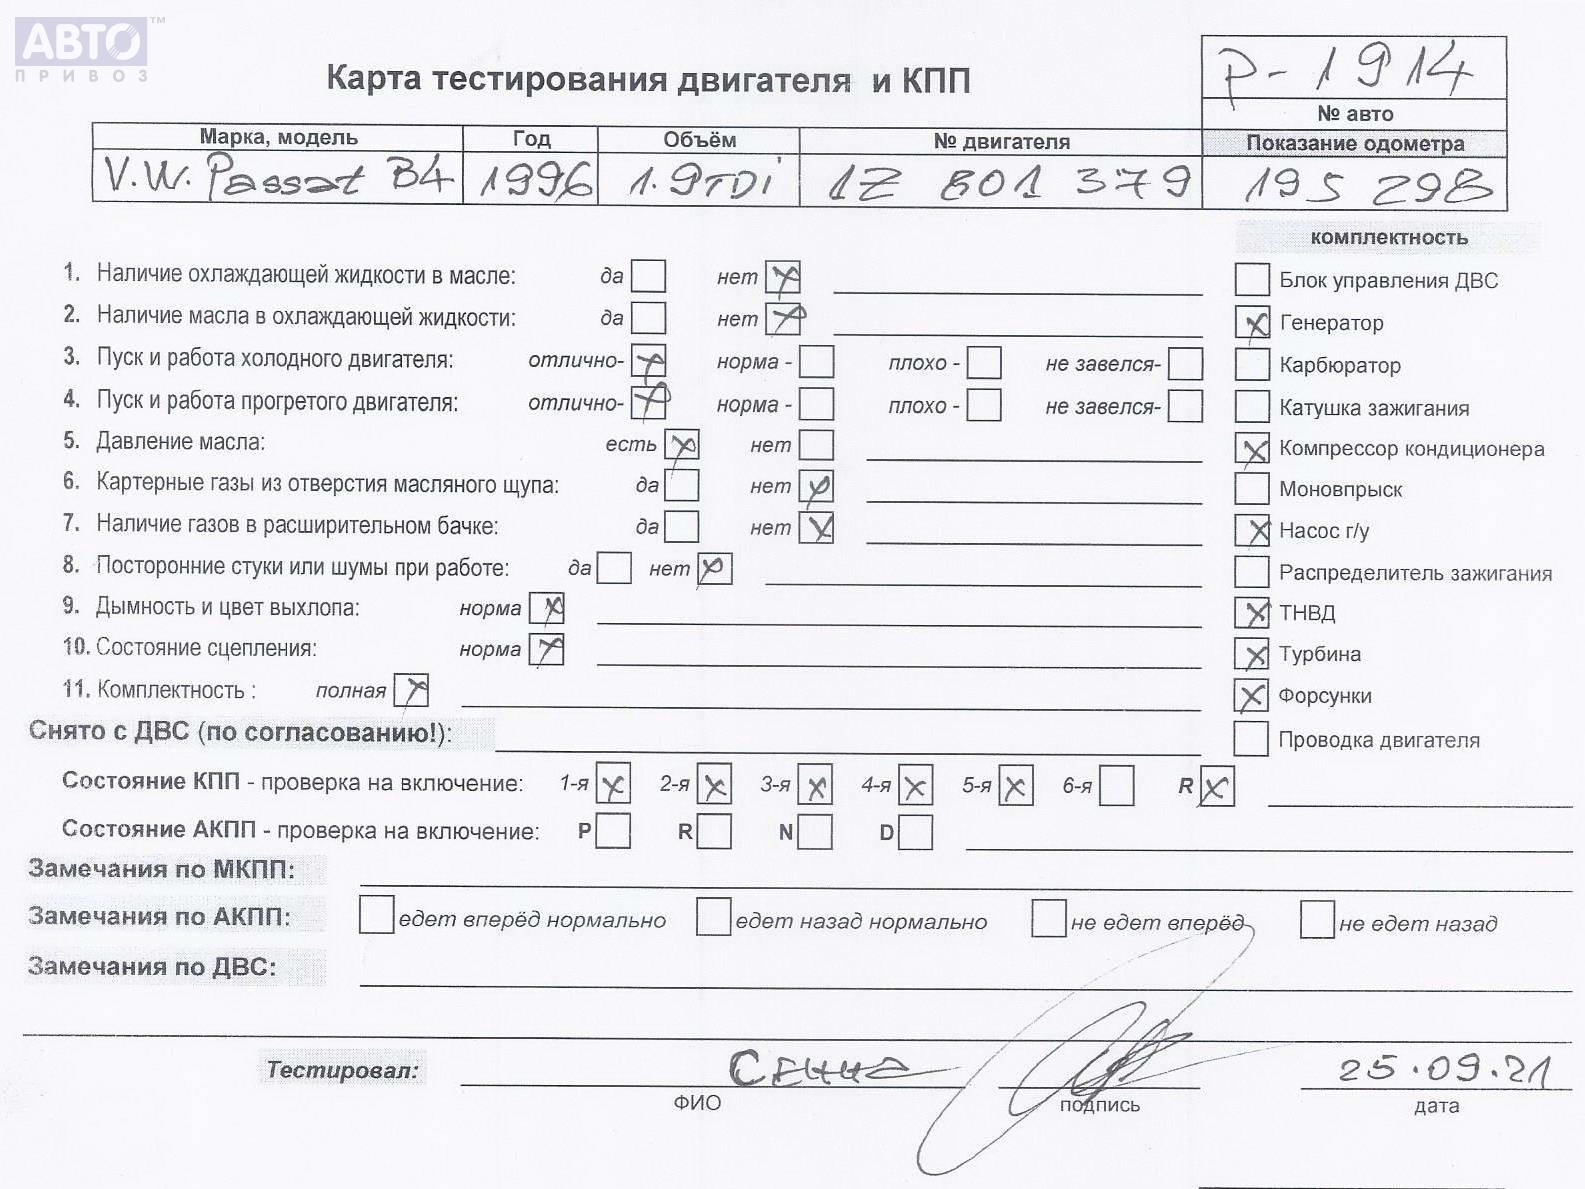 АВТО™
ПРИВОЗ
Карта тестирования двигателя и КПП
P-1914
№ авто
Марка, модель Год Объём № двигателя Показание одометра
V.W. Passat B4 1996 1.9TDi 1Z 801 379 195 298
комплектность
1. Наличие охлаждающей жидкости в масле: да нет
Блок управления ДВС
2. Наличие масла в охлаждающей жидкости: да нет
Генератор
3. Пуск и работа холодного двигателя: отлично- норма - плохо - не завелся-
Карбюратор
4. Пуск и работа прогретого двигателя: отлично- норма - плохо - не завелся-
Катушка зажигания
5. Давление масла: есть нет
Компрессор кондиционера
6. Картерные газы из отверстия масляного щупа: да нет
Моновпрыск
7. Наличие газов в расширительном бачке: да нет
Насос г/у
8. Посторонние стуки или шумы при работе: да нет
Распределитель зажигания
9. Дымность и цвет выхлопа: норма
ТНВД
10. Состояние сцепления: норма
Турбина
11. Комплектность : полная
Форсунки
Снято с ДВС (по согласованию!):
Проводка двигателя
Состояние КПП - проверка на включение: 1-я 2-я 3-я 4-я 5-я 6-я R
Состояние АКПП - проверка на включение: P R N D
Замечания по МКПП:
Замечания по АКПП: едет вперёд нормально едет назад нормально не едет вперёд не едет назад
Замечания по ДВС:
Тестировал: Сенна 25.09.21
ФИО подпись дата